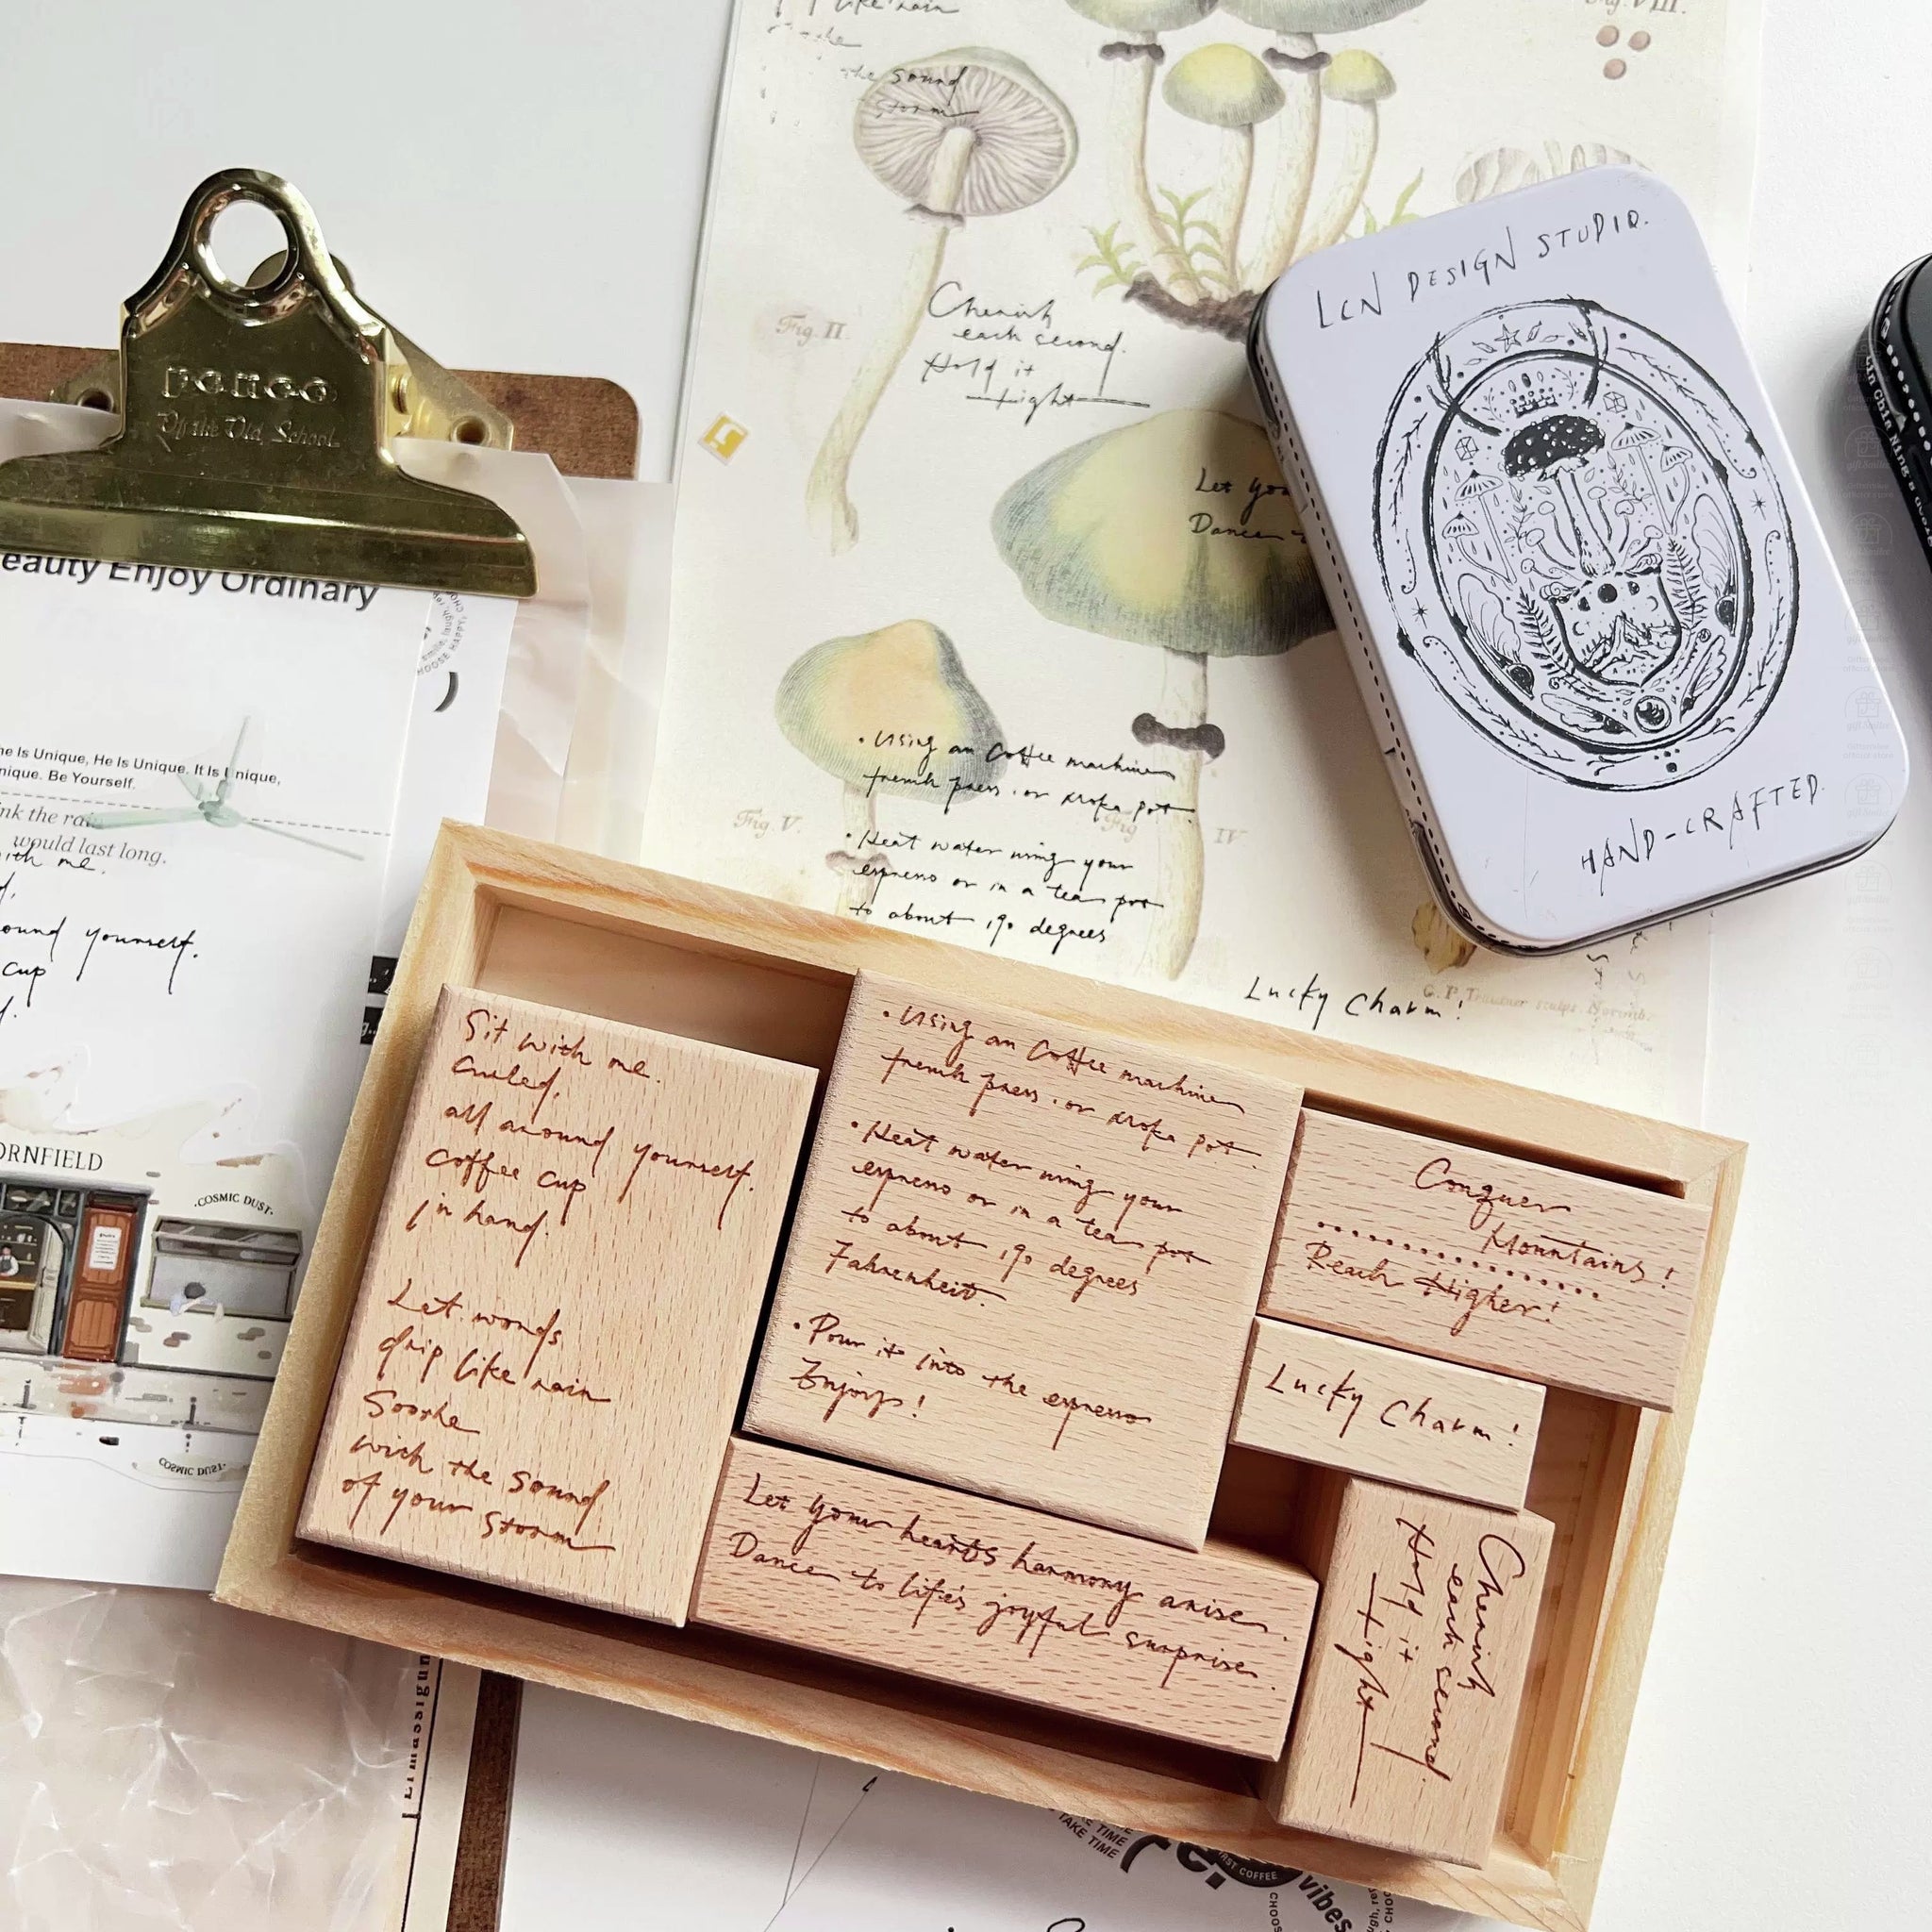 like rain
the sound
storm
Fig. VIII.
LCN DESIGN STUDIO.
HAND-CRAFTED.
Fig. II.
Cherish
each second.
Hold it
tight
PENCO
Let you
Dance
eauty Enjoy Ordinary
CHOOSE HAPPY
ne Is Unique, He Is Unique, It Is Unique,
nique. Be Yourself.
ink the rain
would last long.
ith me.
ound yourself.
cup
• Using an Coffee machine
french press. or Moka pot.
• Heat water using your
espresso or in a tea pot
to about 190 degrees
Fig. V.
Fig IV
Lucky Charm!
ORNFIELD
·COSMIC DUST·
COSMIC DUST·
Sit with me.
Curled,
all around yourself.
coffee cup
in hand.
Let words
drip like rain
Soothe
with the sound
of your storm
• Using an Coffee machine
french press. or Moka pot.
• Heat water using your
espresso or in a tea pot
to about 190 degrees
Fahrenheit.
• Pour it into the espresso
Enjoy!
Conquer
Mountains!
Reach Higher!
Lucky Charm!
Let your hearts harmony arise.
Dance to life's joyful surprise.
Cherish
each second.
Hold it
tight
TAKE TIME
TAKE TIME
RST COFFEE
vibes